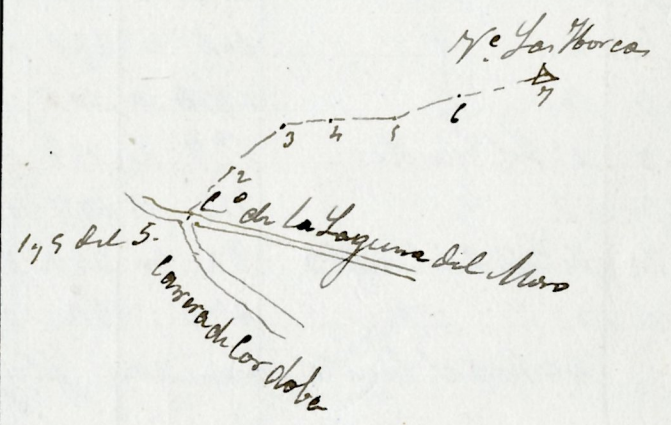 Ve. Las Horcas
7
6
5
4
3
2
Co de la Laguna del Moro
1 y 5 del 5.
Carrera de Cordoba